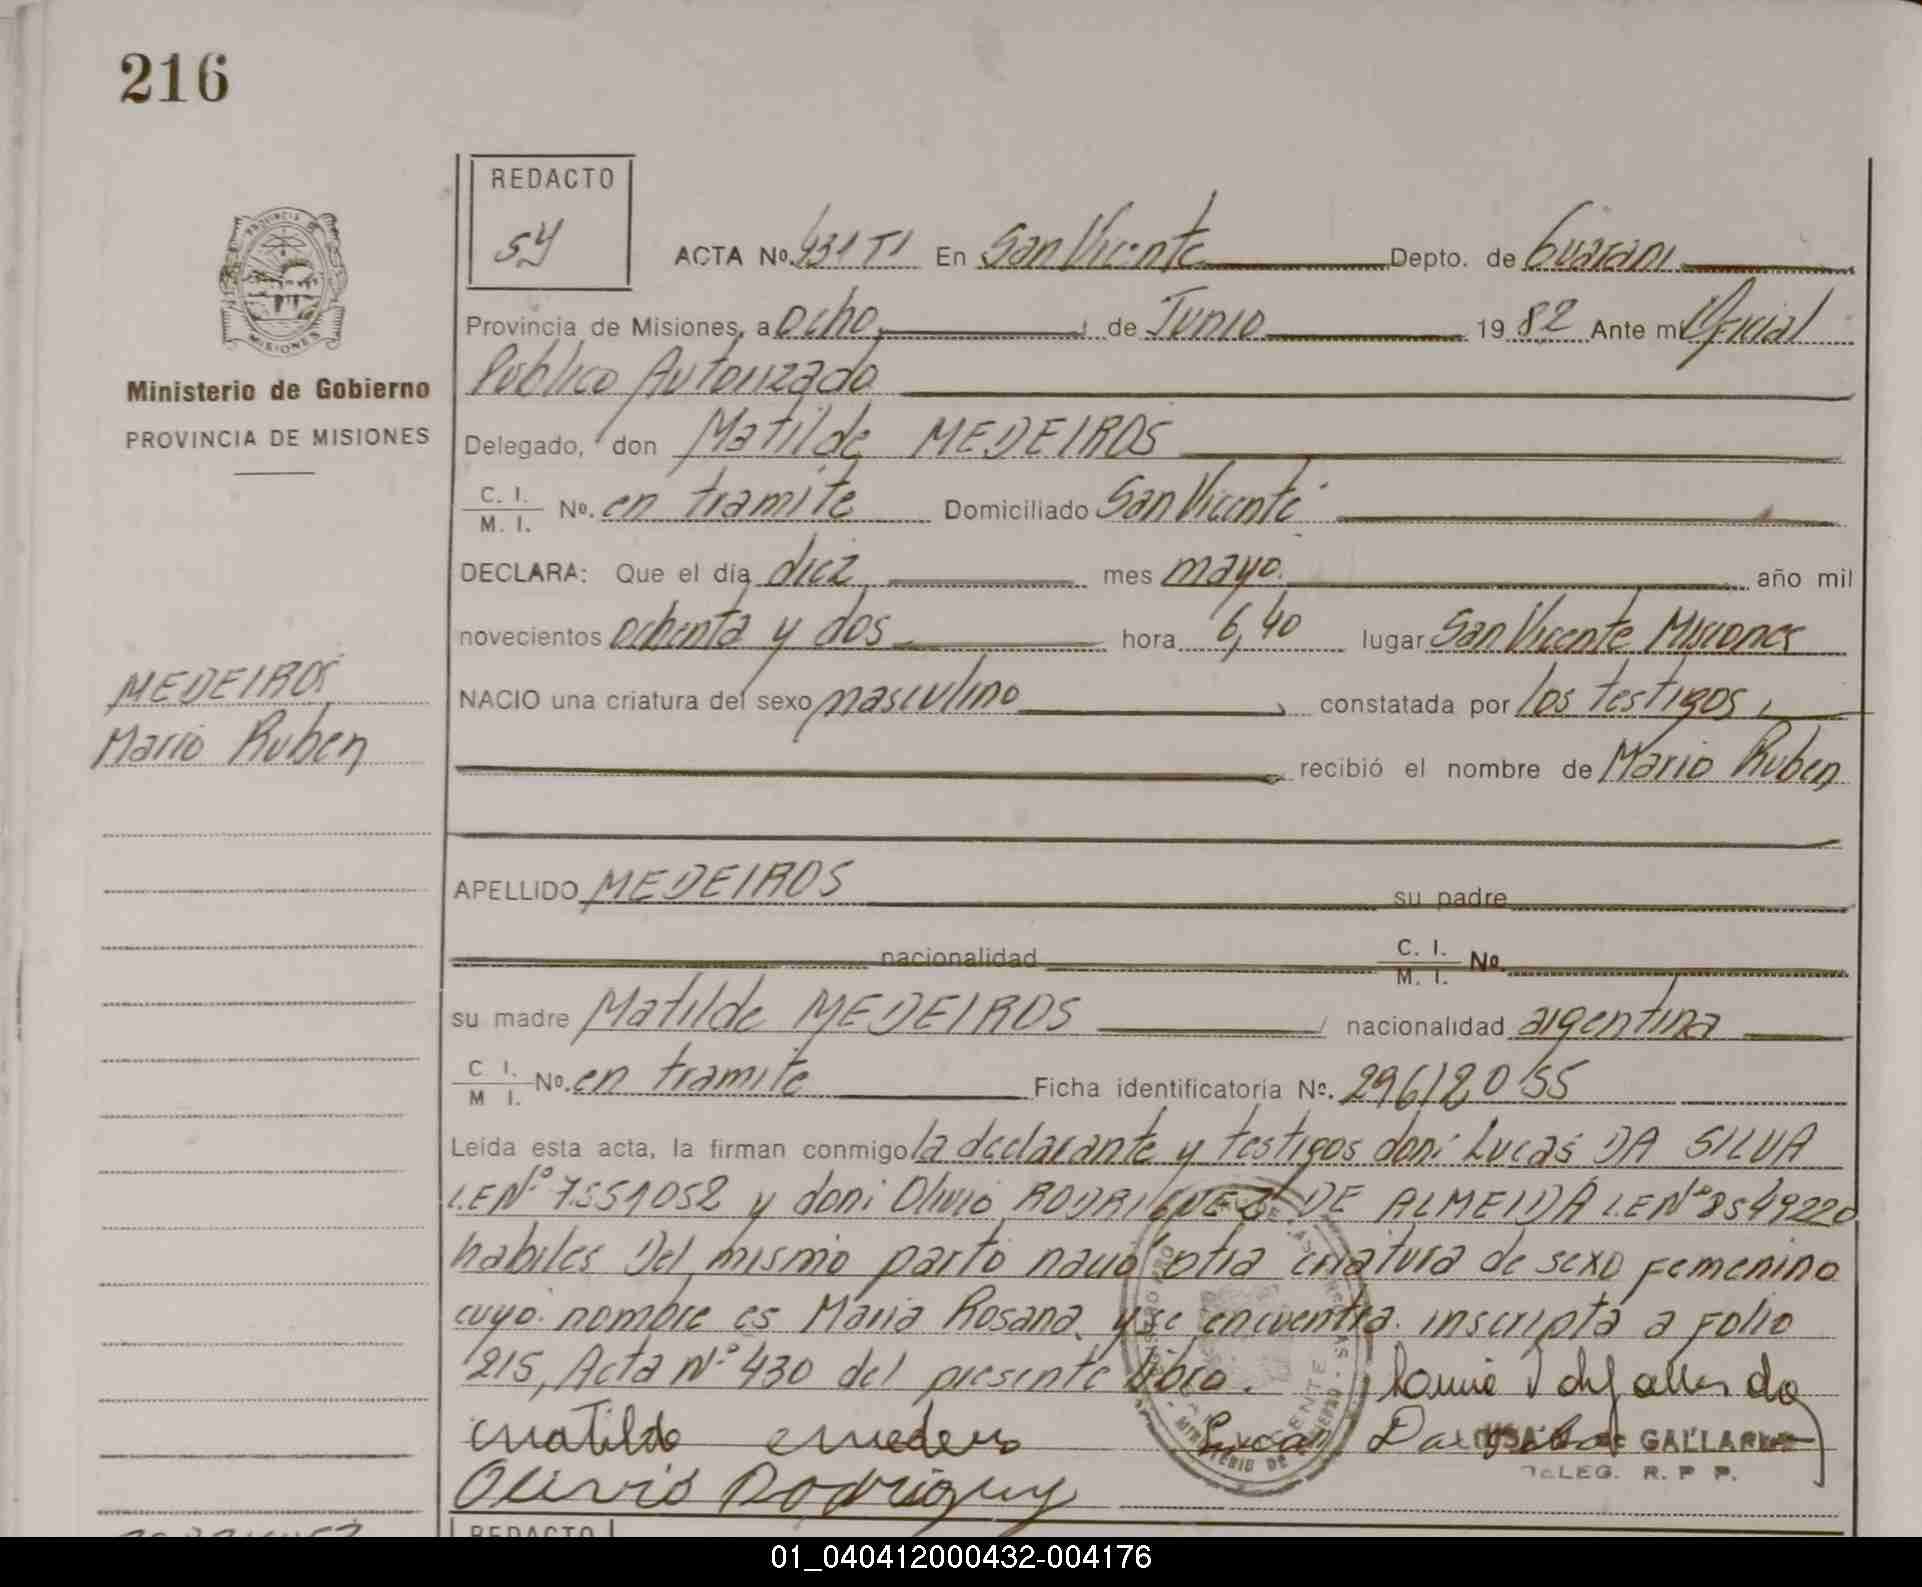 216
REDACTO
sy
ACTA No. 431 T1 En San Vicente Depto. de Guarani
Provincia de Misiones, a ocho de Junio 1982 Ante mi Oficial
Publico Autorizado
Delegado, don Matilde MEDEIROS
C. I.
M. I. No. en tramite Domiciliado San Vicente
DECLARA: Que el día diez mes mayo año mil
novecientos ochenta y dos hora 6,40 lugar San Vicente Misiones
NACIO una criatura del sexo masculino constatada por los testigos,
recibió el nombre de Mario Ruben
APELLIDO MEDEIROS su padre
nacionalidad C. I.
M. I. No.
su madre Matilde MEDEIROS nacionalidad argentina
C I.
M I. No. en tramite Ficha identificatoria No. 296/80 55
Leída esta acta, la firman conmigo la declarante y testigos don: Lucas DA SILVA
L.E Nº 7.551052 y don: Olivio RODRIGUEZ DE ALMEIDA L.E Nº 8549220
habiles Del mismo parto nació otra criatura de sexo femenino
cuyo nombre es Maria Rosana y se encuentra inscripta a Folio
215, Acta Nº 430 del presente libro.
Matilde medeiros Lucas Da Silva
GALLARDO
DELEG. R. P P.
Olivio Rodriguez
PROVINCIA DE
MISIONES
Ministerio de Gobierno
PROVINCIA DE MISIONES
MEDEIROS
Mario Ruben
REDACTO
01_040412000432-004176